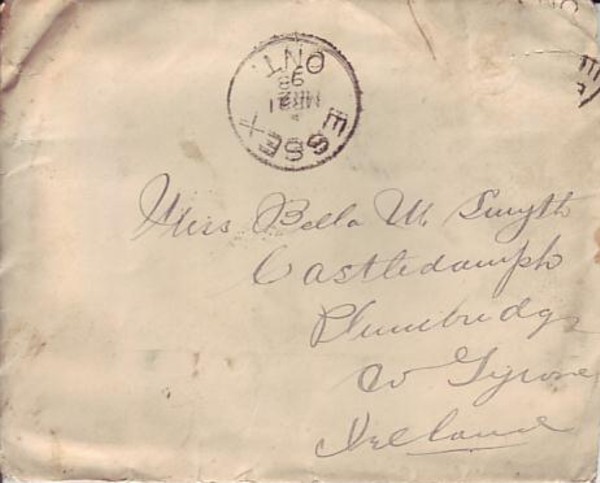 ESSEX
MR 21
98
ONT.
Miss Bella M. Smyth
Castledamph
Plumbridge
Co Tyrone
Ireland